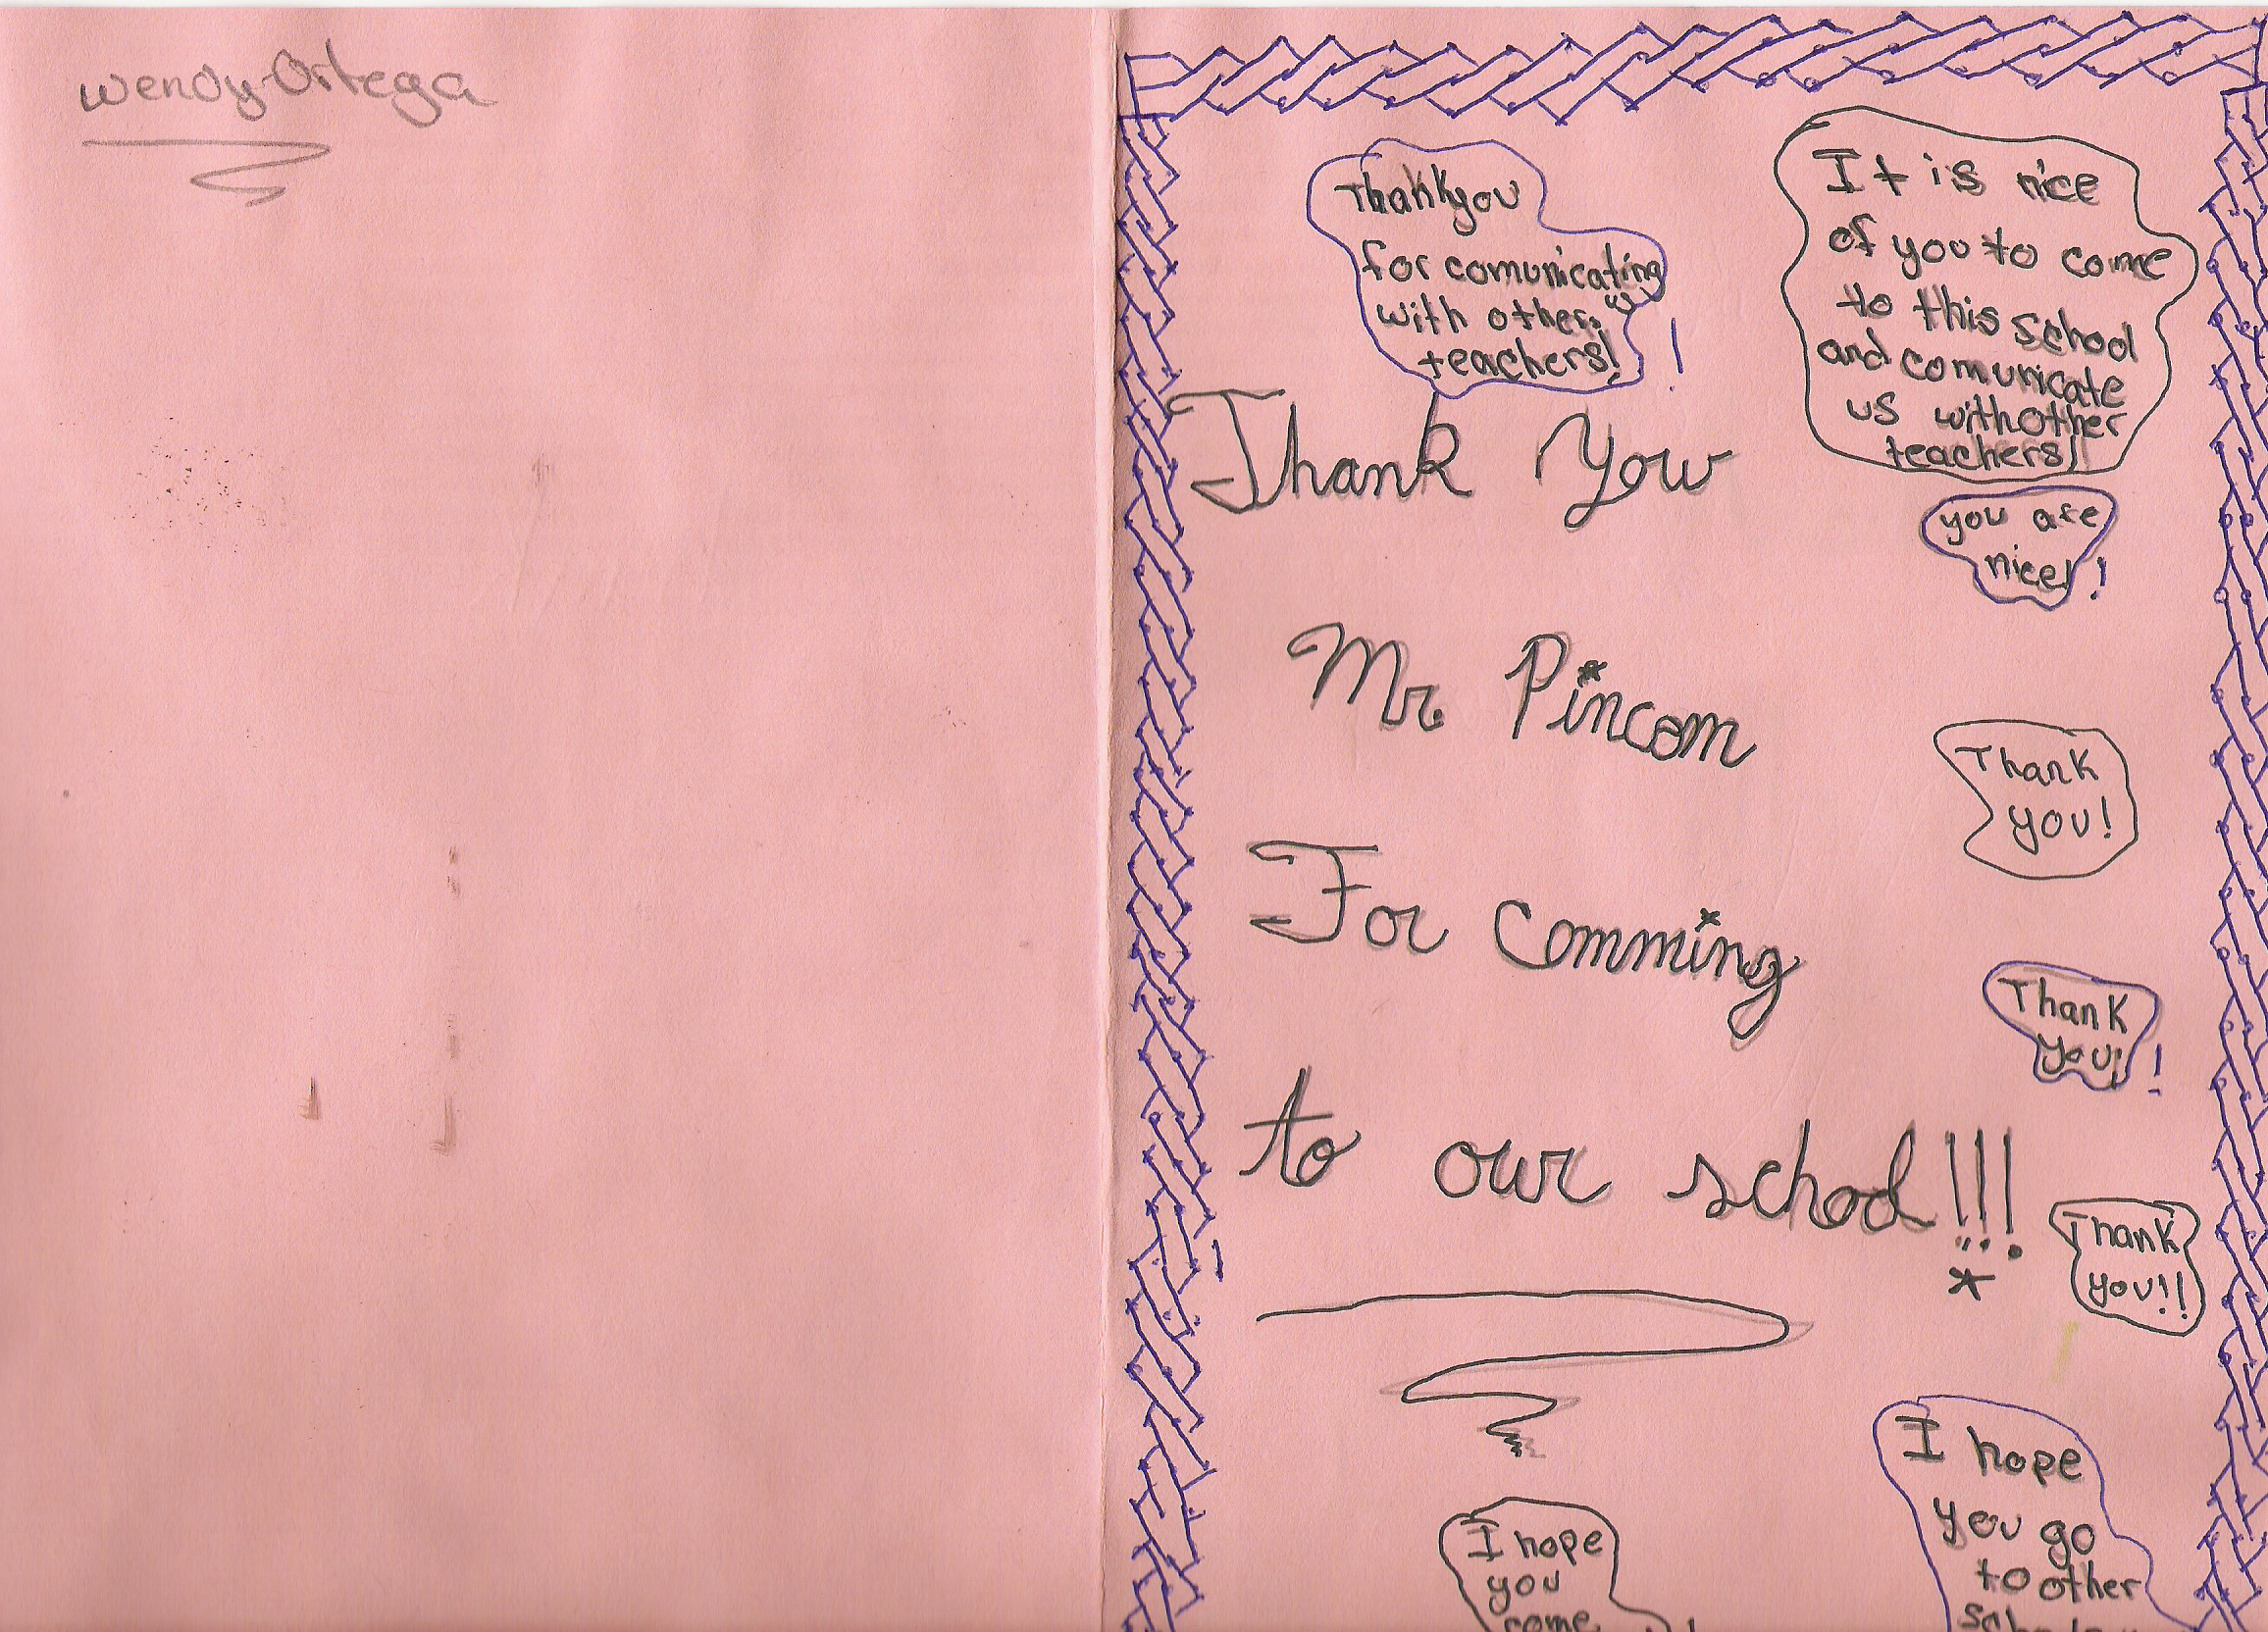 Wendy Ortega
Thank you
for comunicating
with other
teachers!
!
It is nice
of you to come
to this school
and comunicate
us with other
teachers!
Thank You
you are
nice!
!
Mr. Pincom
Thank
you!
For Comming
Thank
you!
!
to our school!!!
Thank
you!!
I hope
you go
to other
I hope
you
come